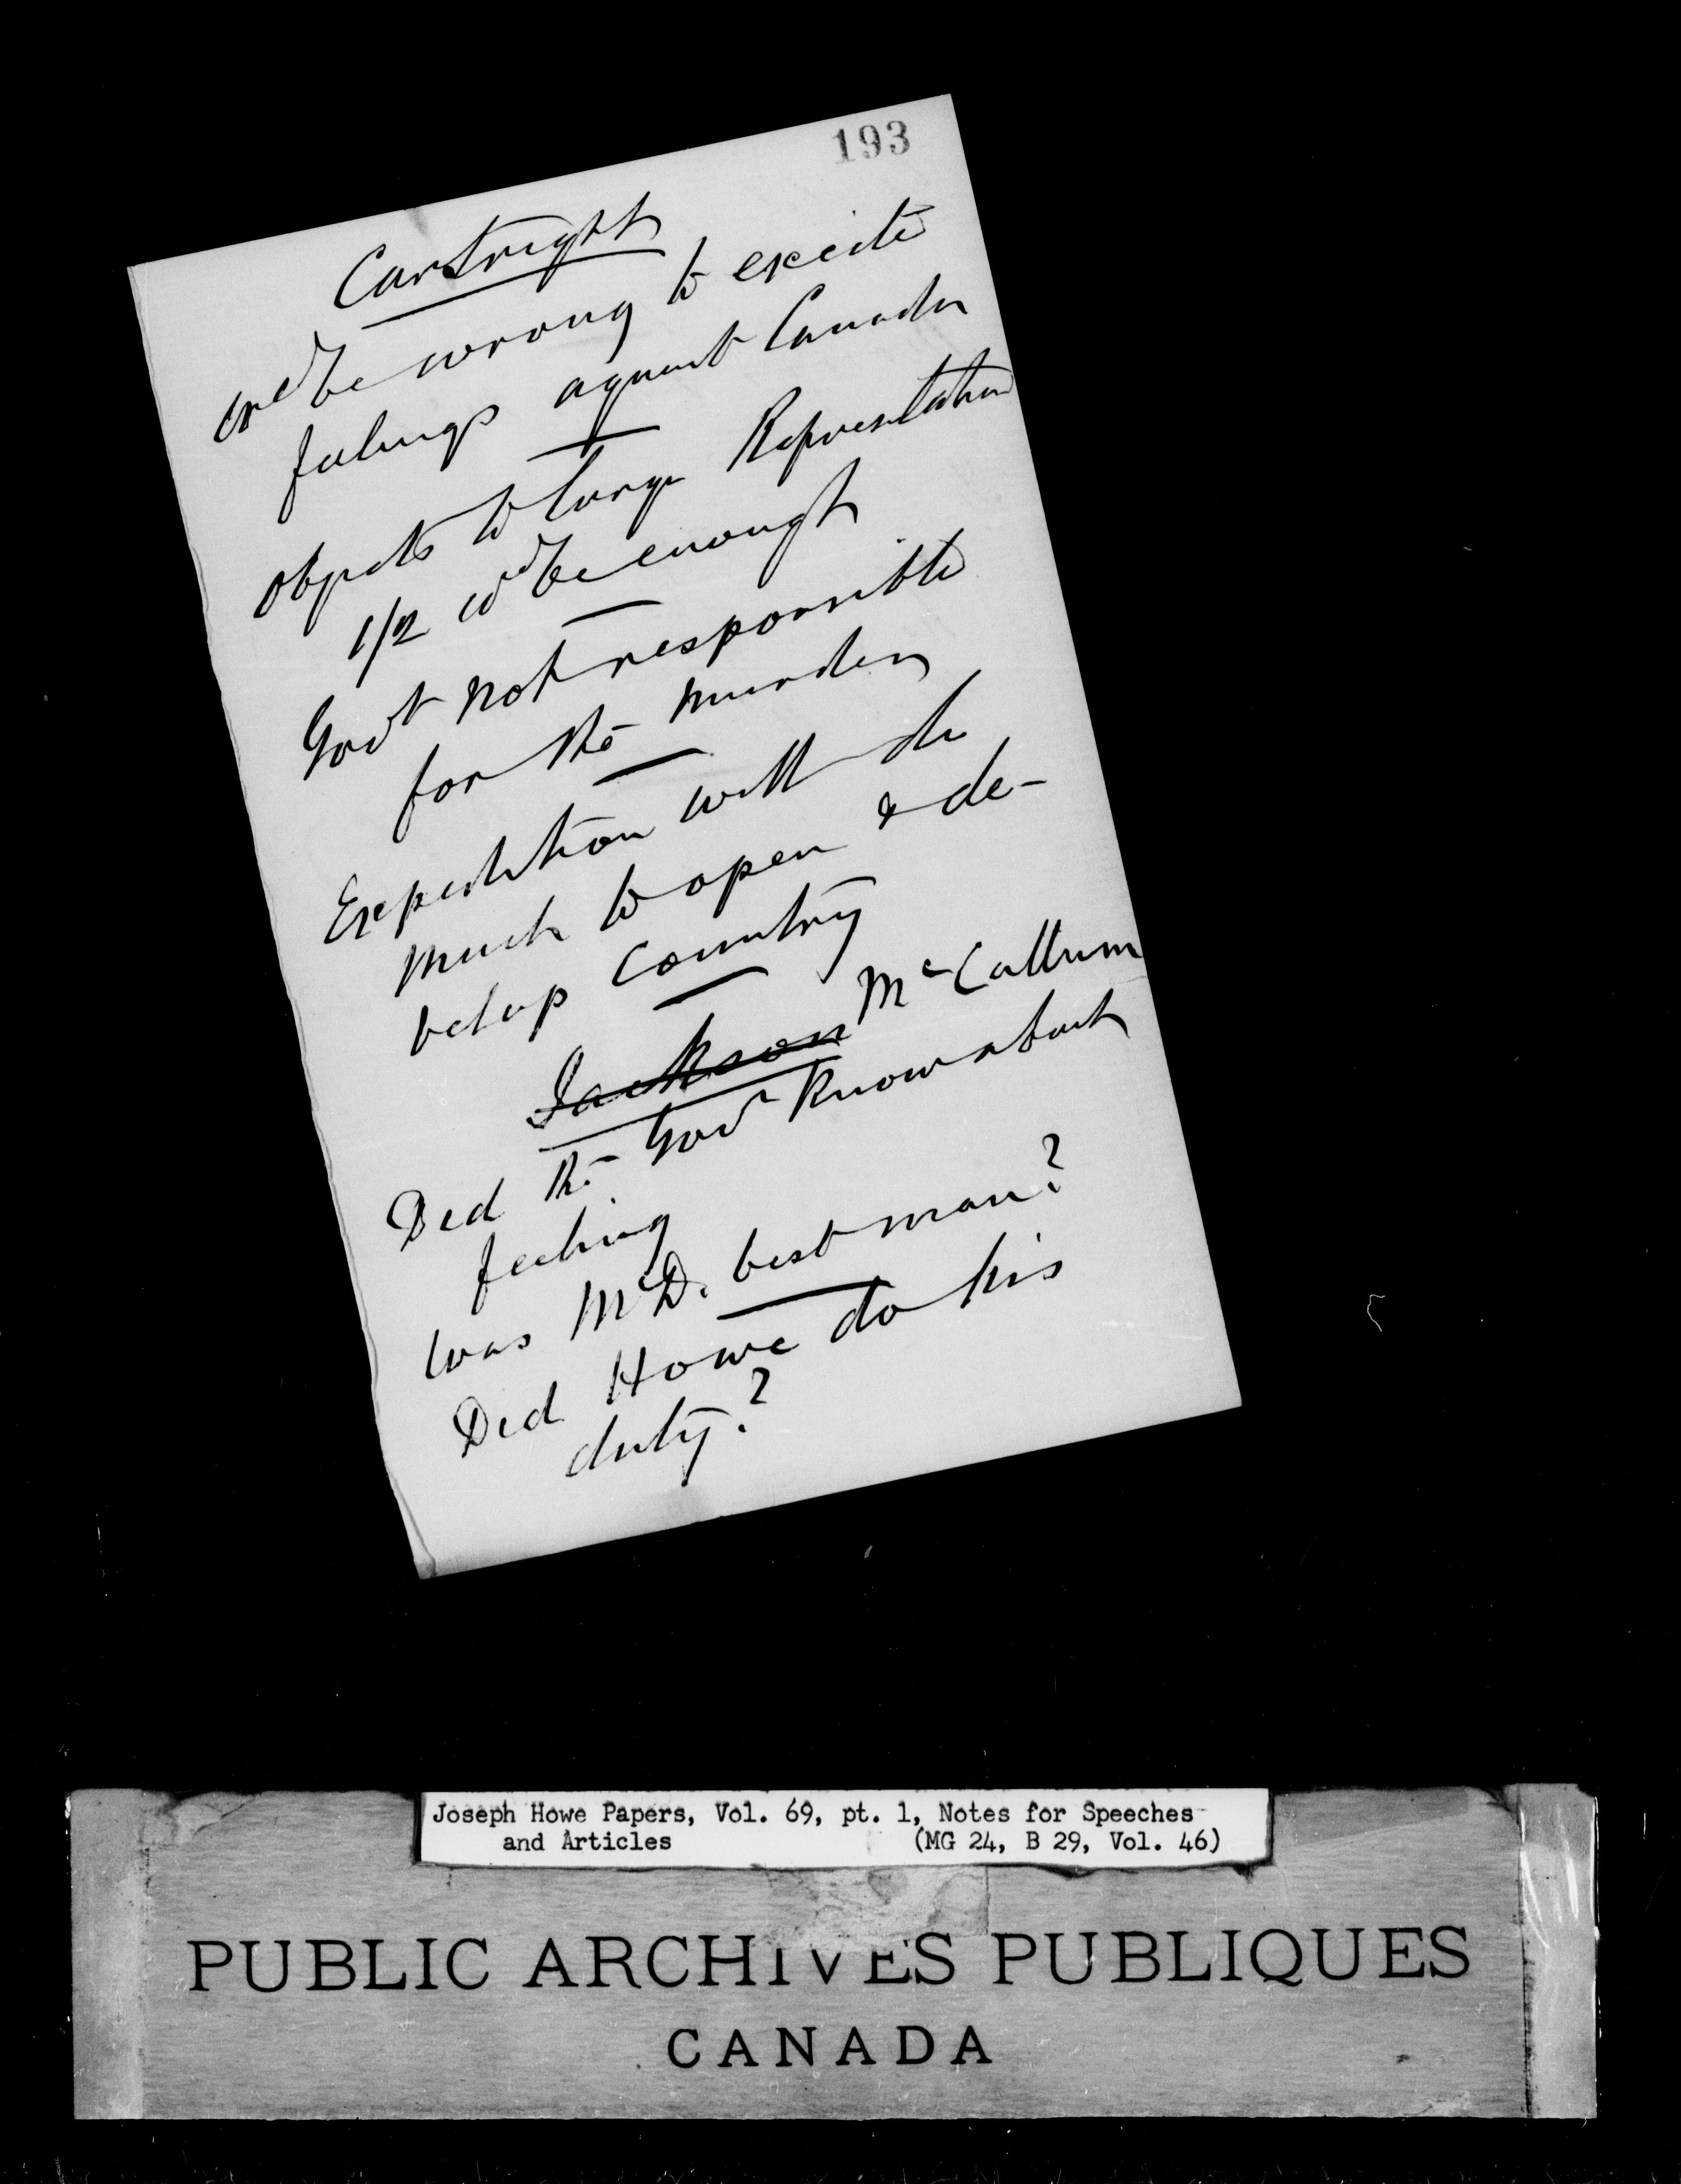 193
Cartright
wd be wrong to excite
feelings against Canada
objects to large Representation
1/2 wd be enough
Govt not responsible
for the murder
Expedition will do
much to open & de-
velop country
Jackson McCallum
Did the Govt Know about
feeling
Was McD. best man?
Did Howe do his
duty?
Joseph Howe Papers, Vol. 69, pt. 1, Notes for Speeches
and Articles (MG 24, B 29, Vol. 46)
PUBLIC ARCHIVES PUBLIQUES
CANADA